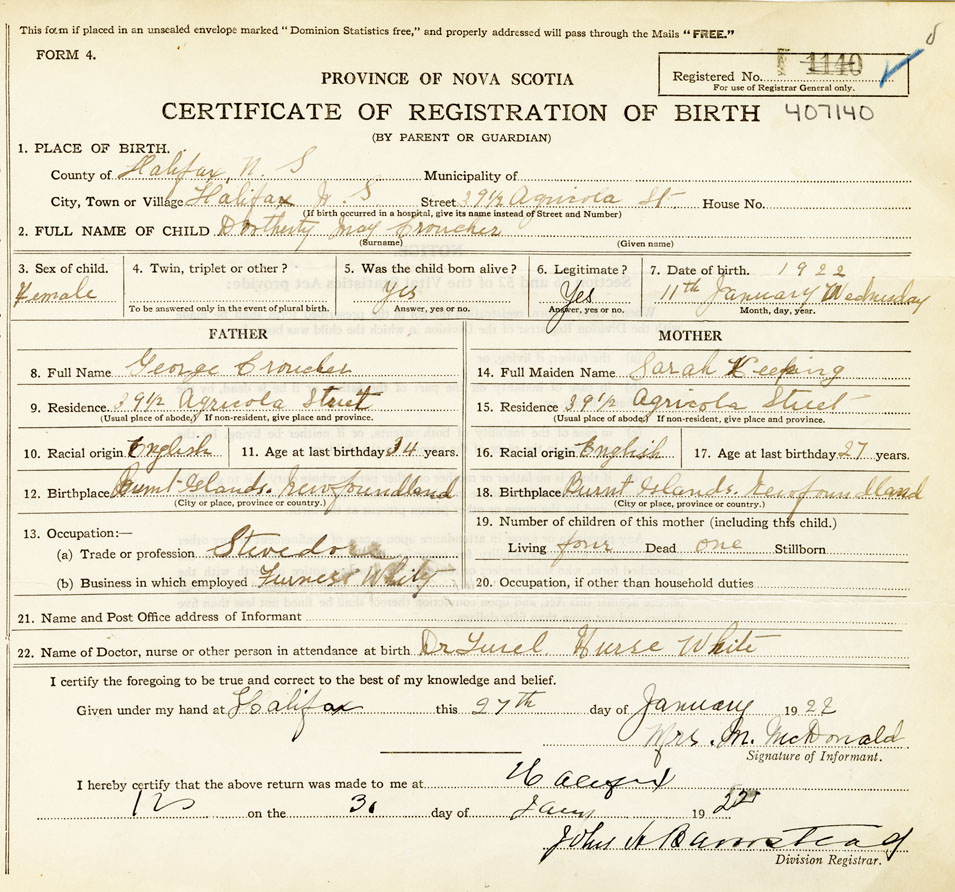 This form if placed in an unsealed envelope marked "Dominion Statistics free," and properly addressed will pass through the Mails "FREE."
FORM 4.
PROVINCE OF NOVA SCOTIA
Registered No. 1140
For use of Registrar General only.
CERTIFICATE OF REGISTRATION OF BIRTH 407140
(BY PARENT OR GUARDIAN)
1. PLACE OF BIRTH.
County of Halifax, N. S Municipality of
City, Town or Village Halifax N S Street 39½ Agricola St House No.
(If birth occurred in a hospital, give its name instead of Street and Number)
2. FULL NAME OF CHILD Dortherty May Croucher
(Surname) (Given name)
3. Sex of child. 4. Twin, triplet or other? 5. Was the child born alive? 6. Legitimate? 7. Date of birth. 1922
Female yes Yes 11th January Wednesday
To be answered only in the event of plural birth. Answer, yes or no. Answer, yes or no. Month, day, year.
FATHER MOTHER
8. Full Name George Croucher 14. Full Maiden Name Sarah Keeping
9. Residence 39½ Agricola Street 15. Residence 39½ Agricola Street
(Usual place of abode.) If non-resident, give place and province. (Usual place of abode.) If non-resident, give place and province.
10. Racial origin English 11. Age at last birthday 34 years. 16. Racial origin English 17. Age at last birthday 27 years.
12. Birthplace Burnt Islands. Newfoundland 18. Birthplace Burnt Islands. Newfoundland
(City or place, province or country.) (City or place, province or country.)
13. Occupation:— 19. Number of children of this mother (including this child.)
(a) Trade or profession Stevedore Living four Dead one Stillborn
(b) Business in which employed Furness Withy 20. Occupation, if other than household duties
21. Name and Post Office address of Informant
22. Name of Doctor, nurse or other person in attendance at birth Dr Nurse White
I certify the foregoing to be true and correct to the best of my knowledge and belief.
Given under my hand at Halifax this 27th day of January 1922
Mrs. M. McDonald
Signature of Informant.
I hereby certify that the above return was made to me at Halifax
on the 31 day of Jany 1922
John A Barnstead
Division Registrar.